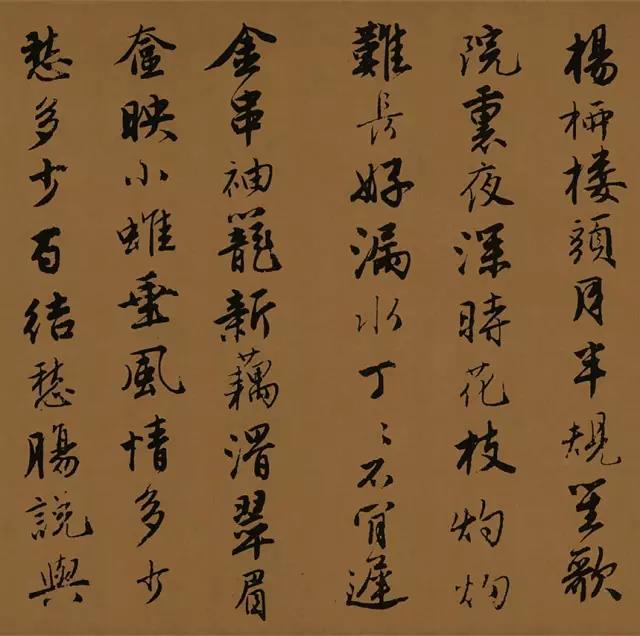 楊柳楼頭月半規笙歌
院裏夜深時花枝灼灼
難長好漏水丁〻不肯遲
金串袖籠新藕滑翠眉
奩映小蛾垂風情多少
愁多少百結愁腸說與